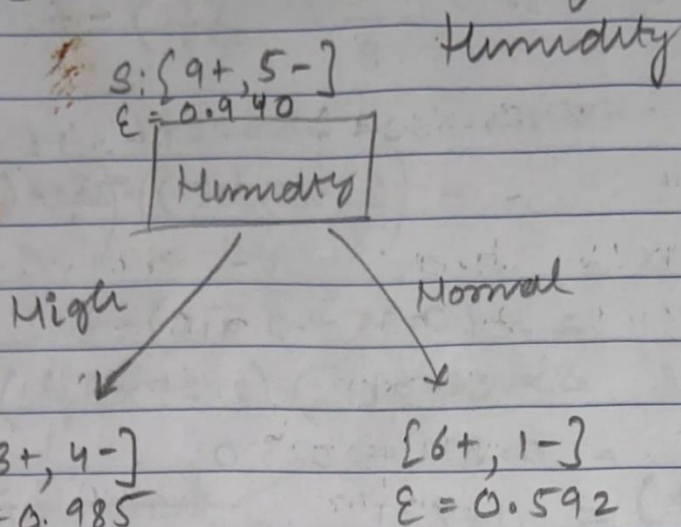 Humidity
S: [9+, 5-]
E = 0.940
Humidity
High
Normal
3+, 4-]
= 0.985
[6+, 1-]
E = 0.592